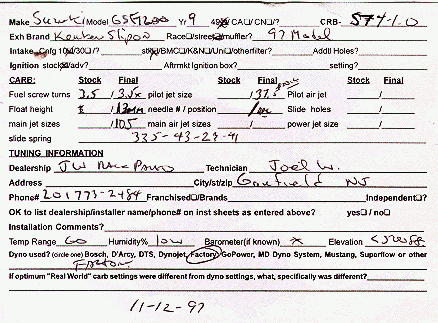 Make Suzuki Model GSF1200 Yr 9 49☒/ CA☐/ CN☐/? CRB- 574-1.0
Exh Brand Slipon Race☐/street☒/muffler? 97 Model
Intake: cnfg 10☒/30☐/? stk☒/BMC☐/K&N☐/Uni☐/otherfilter? Addtl Holes?
Ignition stock☒/adv? Aftrmkt Ignition box? setting?
CARB: Stock Final Stock Final Stock Final
Fuel screw turns 3.5 / pilot jet size / 37.5 Pilot air jet /
Float height / 13mm needle # / position / Slide holes /
main jet sizes /105 main air jet sizes / power jet size /
slide spring 335-43-29-41
TUNING INFORMATION
Dealership JW Technician Joel W.
Address City/st/zip Garfield NJ
Phone# 201 773-2484 Franchised☐/Brands Independent☐?
OK to list dealership/installer name/phone# on inst sheets as entered above? yes☐ / no☐
Installation Comments?
Temp Range 60 Humidity% low Barometer(if known) Elevation
Dyno used? (circle one) Bosch, D'Arcy, DTS, Dynojet, Factory GoPower, MD Dyno System, Mustang, Superflow or other
Factory
If optimum "Real World" carb settings were different from dyno settings, what, specifically was different?
11-12-97